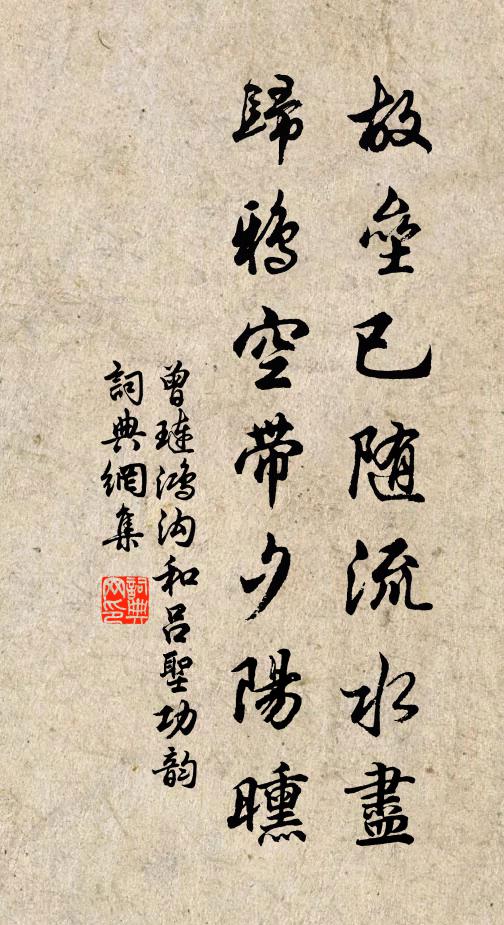 故壘已随流水盡
歸鴉空帶夕陽曛
曾璉鴻沟和呂聖功韵
詞典網集
詞典
网印